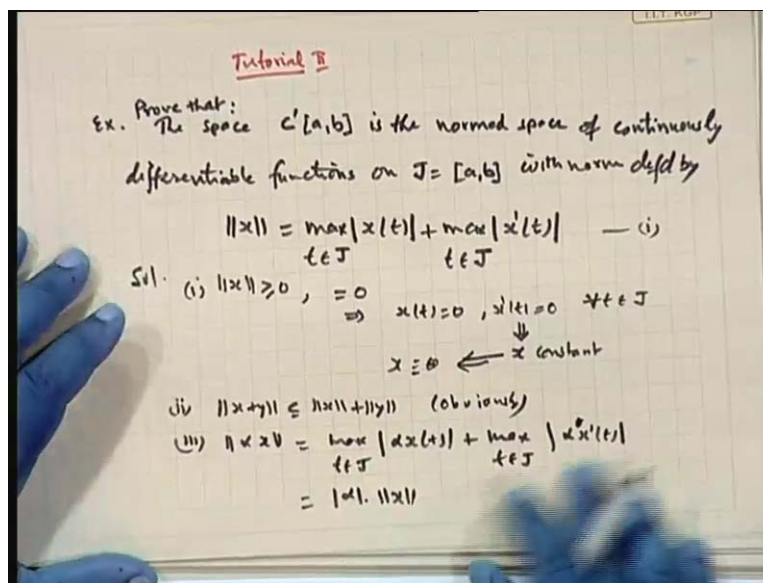 I.I.T. KGP
Tutorial II
Prove that:
Ex. The space C'[a,b] is the normed space of continuously
differentiable functions on J = [a,b] with norm defd by
||x|| = max |x(t)| + max |x'(t)| — (i)
t∈J t∈J
Sol. (i) ||x|| ≥ 0, = 0
⇒ x(t)=0, x'(t)=0 ∀ t ∈ J
⇓
x ≡ 0 ⇐ x constant
(ii) ||x+y|| ≤ ||x||+||y|| (obviously)
(iii) ||αx|| = max |αx(t)| + max |αx'(t)|
t∈J t∈J
= |α|. ||x||